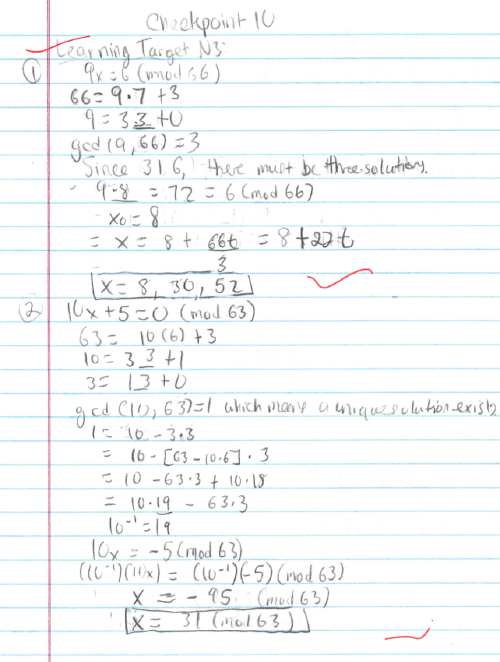 Checkpoint 10
Learning Target N3:
① 9x = 6 (mod 66)
66 = 9·7 + 3
9 = 3 3 + 0
gcd (9, 66) = 3
Since 3 | 6, there must be three solutions.
9·8 = 72 = 6 (mod 66)
x₀ = 8
= x = 8 + 66t/3 = 8 + 22t
x = 8, 30, 52
② 10x + 5 = 0 (mod 63)
63 = 10(6) + 3
10 = 3 3 + 1
3 = 1 3 + 0
gcd (10, 63) = 1 which means a unique solution exists
1 = 10 - 3·3
= 10 - [63 - 10·6] · 3
= 10 - 63·3 + 10·18
= 10·19 - 63·3
10⁻¹ = 19
10x = -5 (mod 63)
((10⁻¹)(10x) = (10⁻¹)(-5) (mod 63)
x = -95 (mod 63)
x = 31 (mod 63)